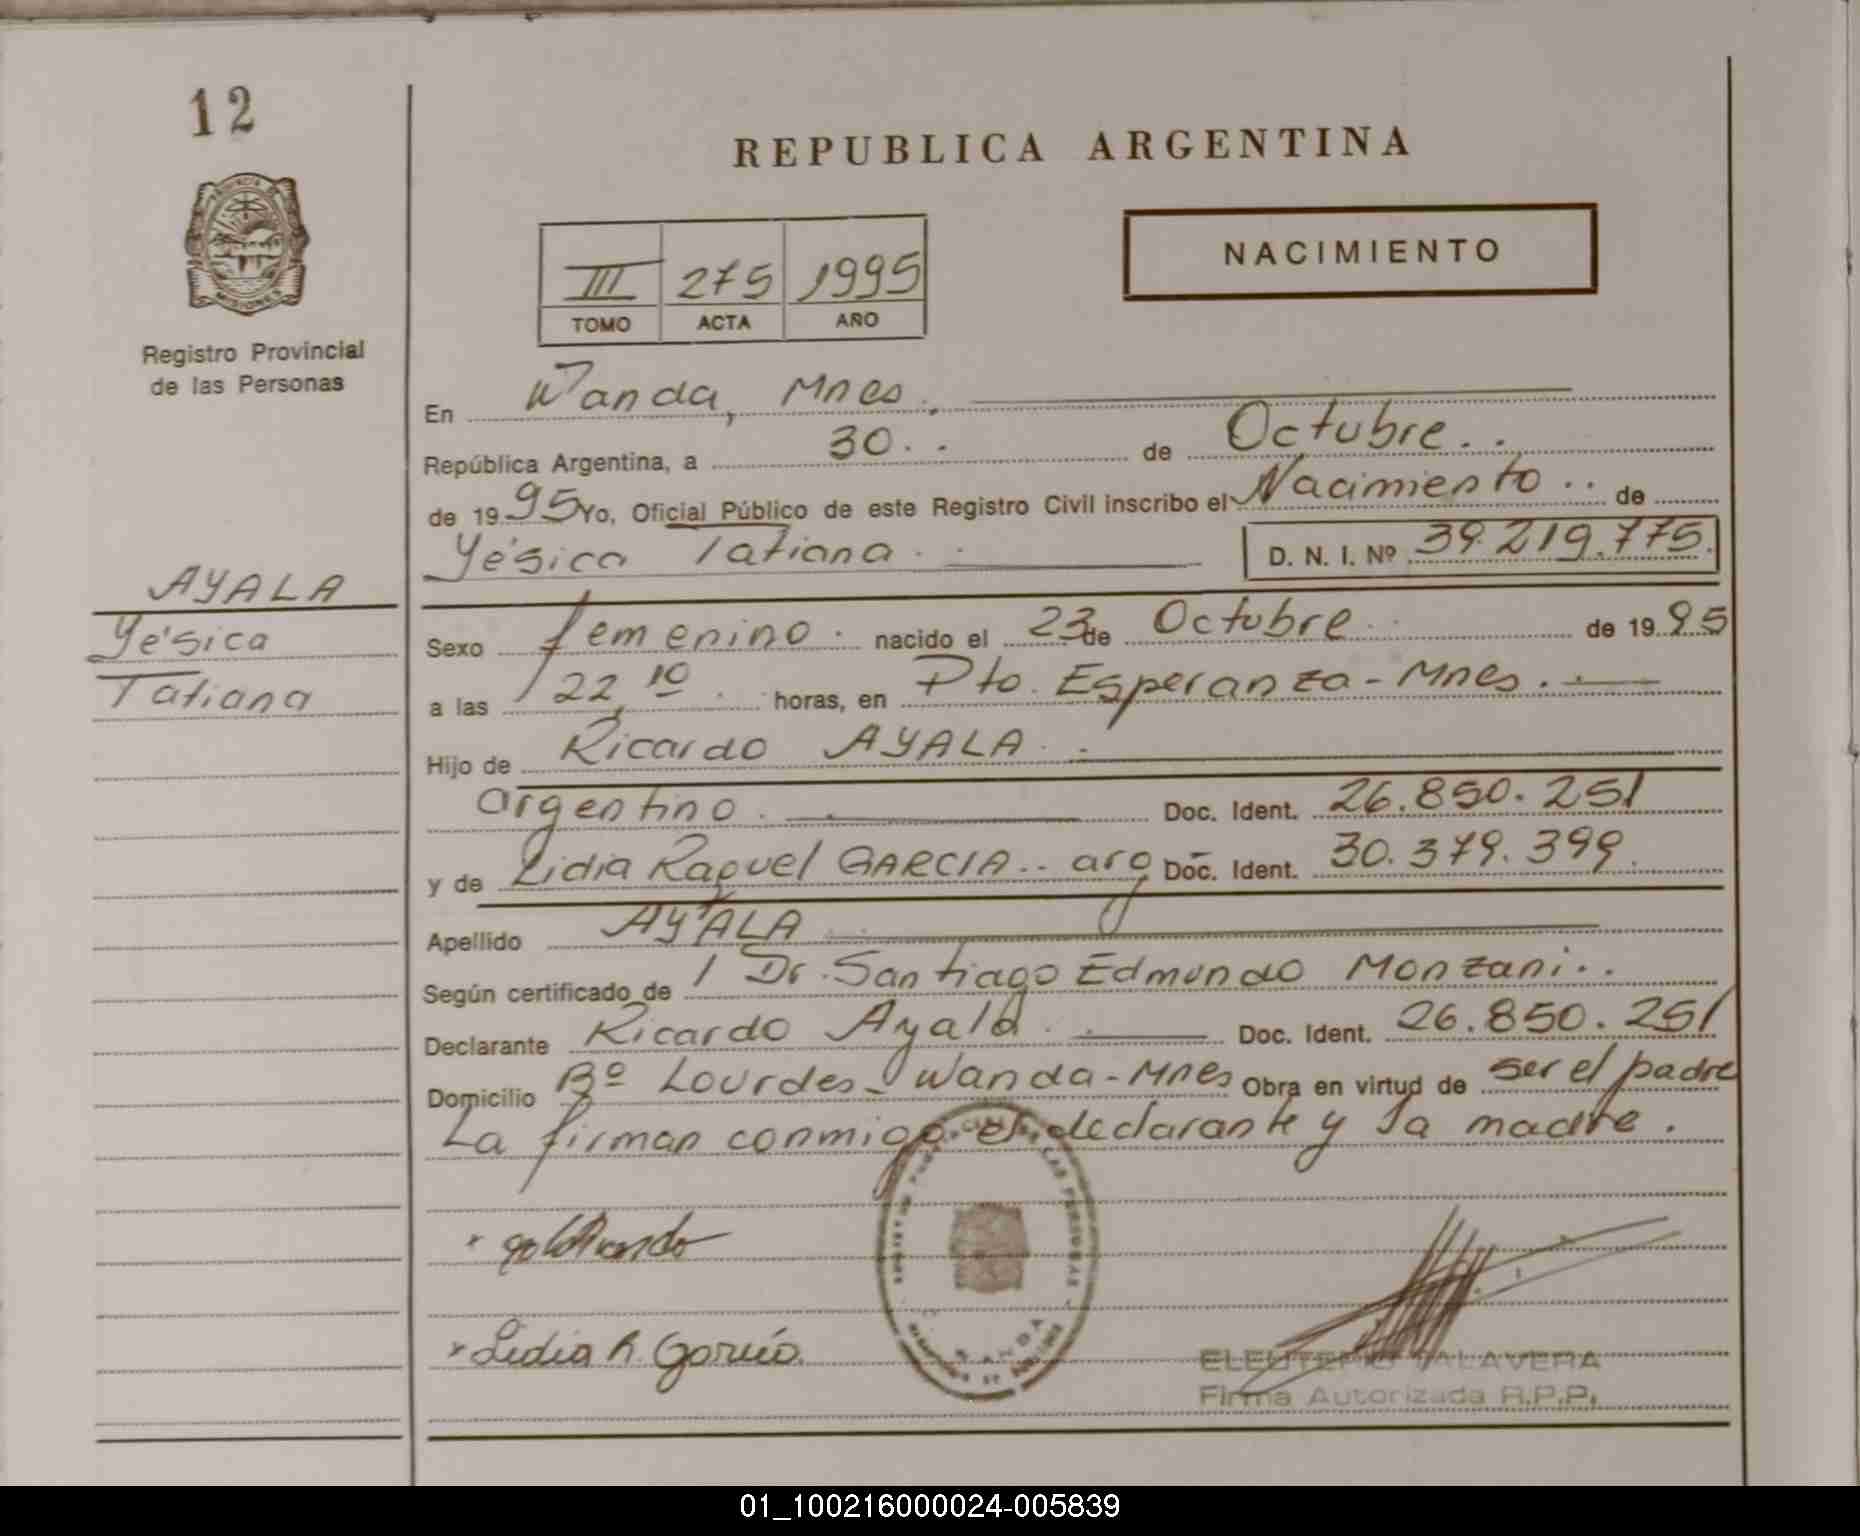 12
REPUBLICA ARGENTINA
NACIMIENTO
III 275 1995
TOMO ACTA AÑO
Registro Provincial
de las Personas
En Wanda, Mnes.
República Argentina, a 30 de Octubre
de 1995 Yo, Oficial Público de este Registro Civil inscribo el Nacimiento de
Yésica Tatiana D. N. I. Nº 39.219.775
AYALA
Yésica
Tatiana
Sexo femenino. nacido el 23 de Octubre de 1995
a las 22,10 horas, en Pto. Esperanza - Mnes.
Hijo de Ricardo AYALA
argentino. Doc. Ident. 26.850.251
y de Lidia Raquel GARCIA.. arg Doc. Ident. 30.379.399
Apellido AYALA
Según certificado de Dr. Santiago Edmundo Monzani..
Declarante Ricardo Ayala Doc. Ident. 26.850.251
Domicilio Bº Lourdes - Wanda - Mnes Obra en virtud de ser el padre
La firman conmigo el declarante y la madre.
Lidia R. García
WANDA
ELEUTERIO TALAVERA
Firma Autorizada R.P.P.
01_100216000024-005839